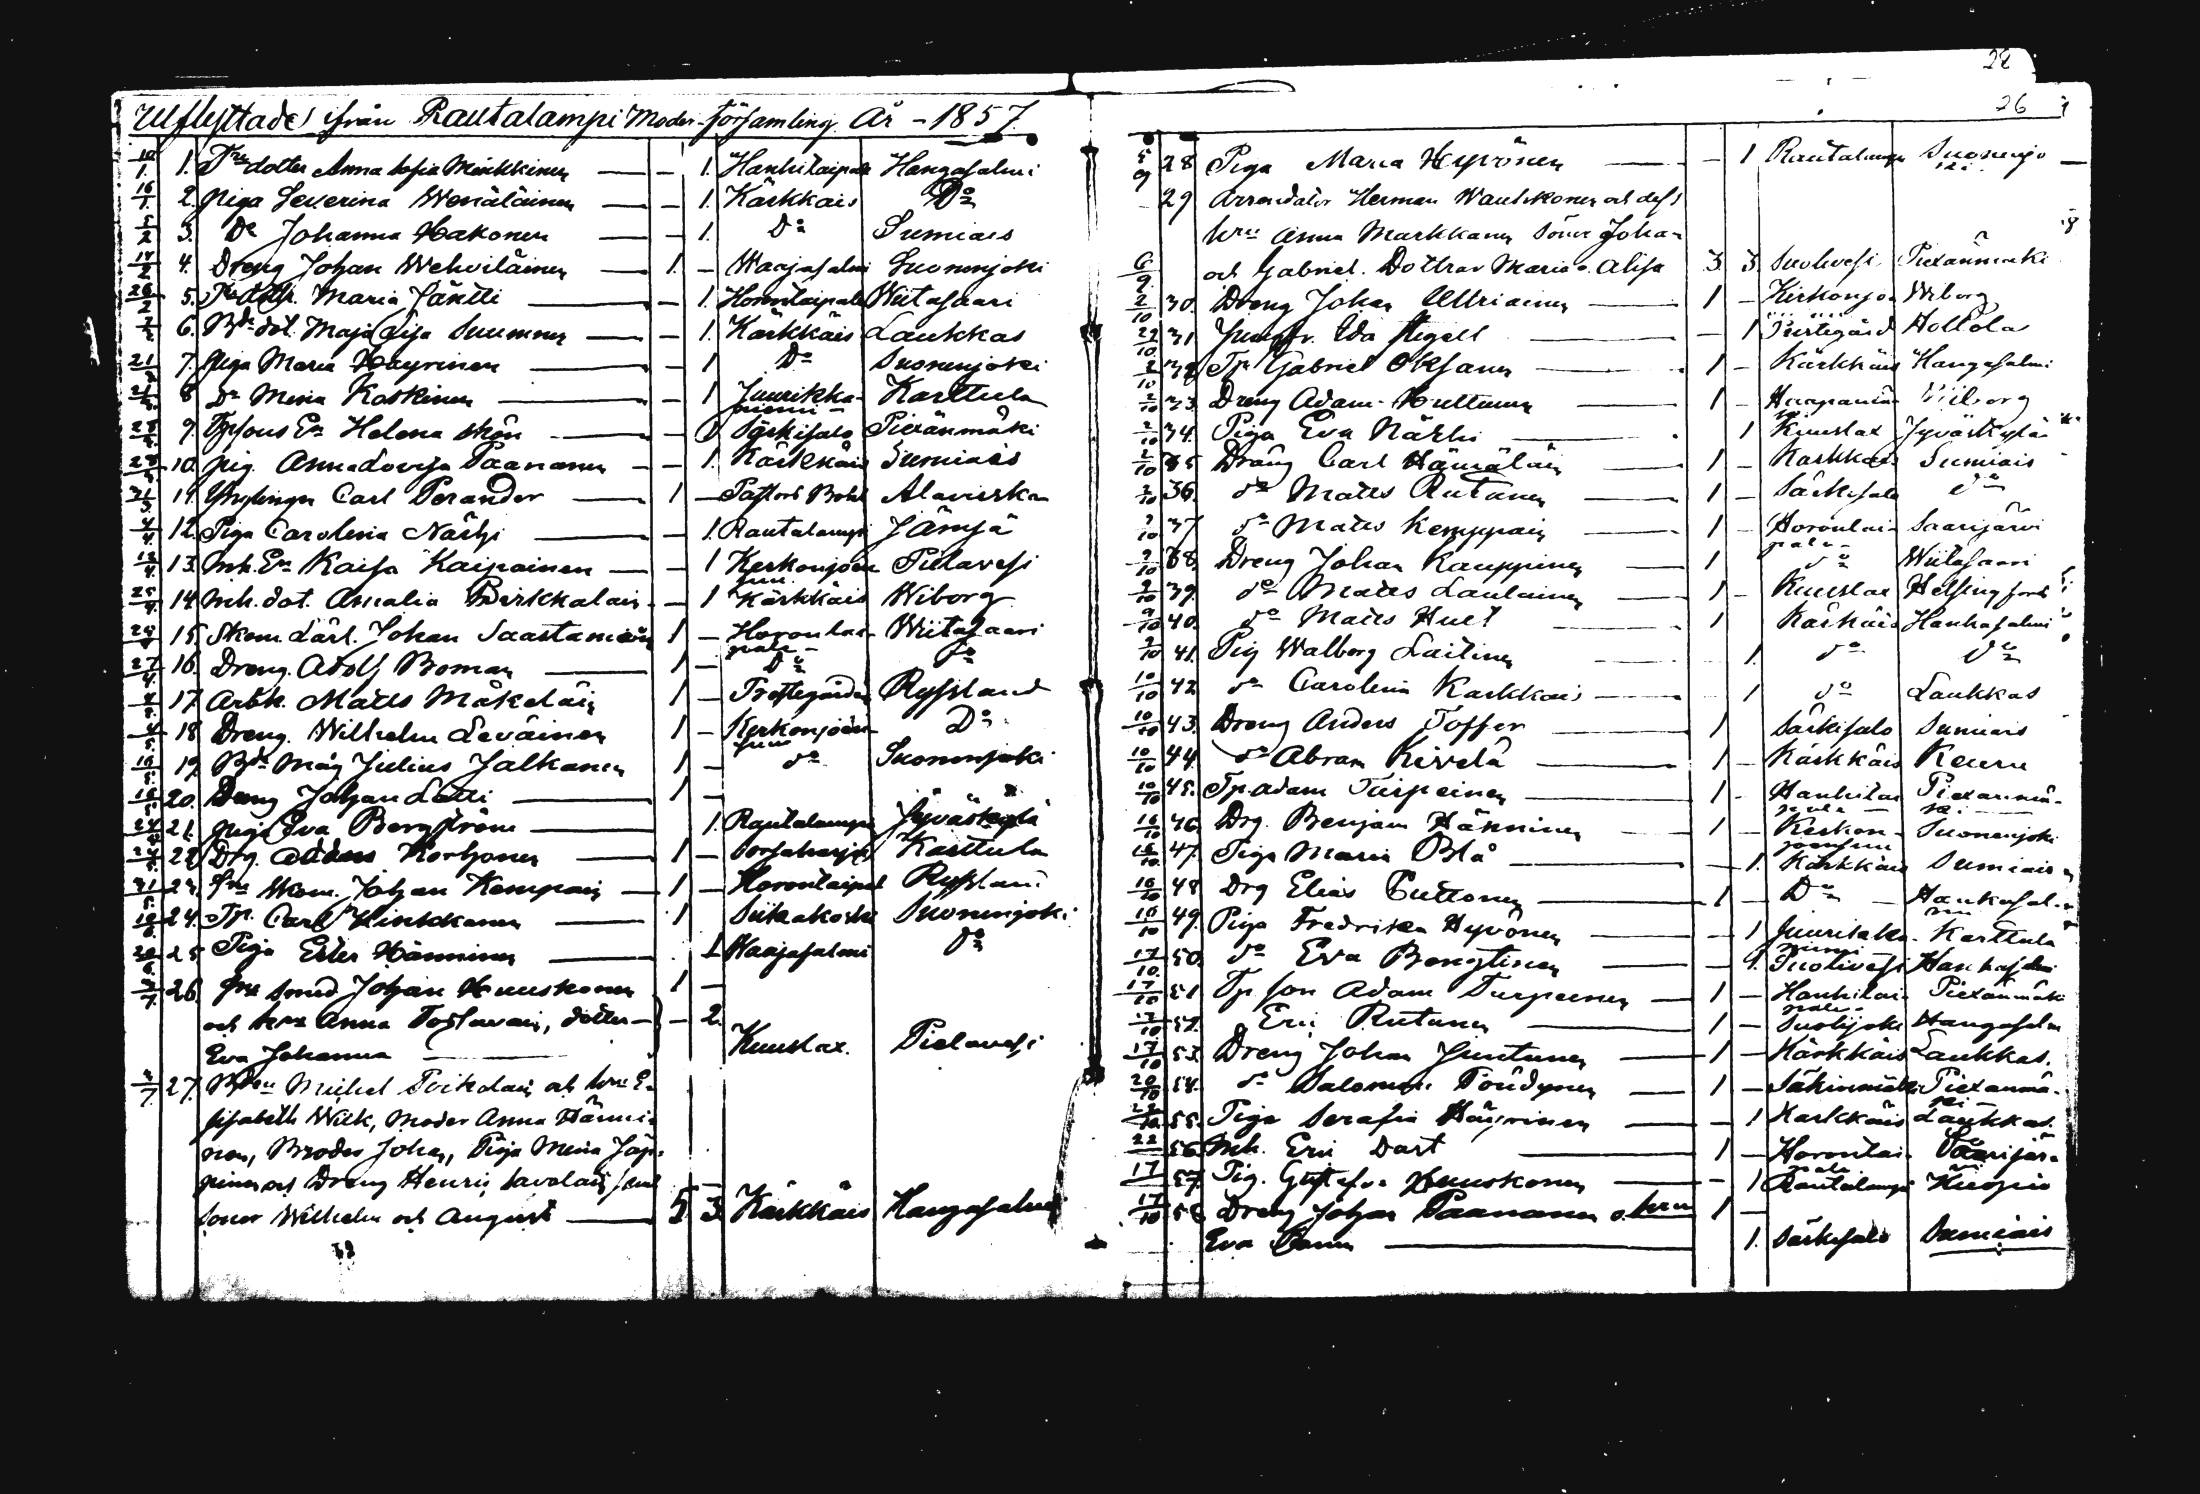 28
26
Utflyttade ifrån Rautalampi Moder församling År - 1857.
10/1 1. Tr dotter Anna Sofia Minkkinen — - 1. Hankitaipale Hangasalmi
16/1 2. Piga Severina Wenäläinen — - 1. Kärkkäis Do
5/2 3. Do Johanna Hakonen — - 1. Do Sumiais
14/2 4. Dreng Johan Wehviläinen — 1. - Waajasalmi Suonenjoki
26/2 5. dottr. Maria Jäntti — - 1. Horontaipale Wiitasaari
6. Bde dot. Maja Suumnen — - 1. Kärkkäis Laukkas
21/3 7. Piga Maria Häyrinen — - 1 Do Suonenjoki
8 Do Mina Koskinen — - 1 Juurikkaniemi - Karttula
9. Helena — - 1 Särkisalo Piexänmäki
10. pig. Anna Lovisa Paananen - - 1. Kärkkäis Sumiais
31/3 11. Ynglingen Carl Perander — 1 - Pastors Bohl
4/4 12. Piga Carolina Närhi — - 1. Rautalampi Jämsä
13. Inh. En Kaisa Kaipainen — - 1 Kerkonjoen Pielavesi
14. Inh. dot. Amalia Pirkkalain - - 1 Kärkkäis Wiborg
15. Skom. Lärl. Johan Saastamoin 1 - Horontaipale - Wiitasaari
27/4 16. Dreng. Adolf Boman — 1 - Do Do
17. Arbk. Matts Mäkeläin 1 - Prestegården Ryssland
18. Dreng. Wilhelm Leväinen 1 - Kerkonjoen Do
16/5 19. Bde Måg Julius Jalkanen 1 - do Suonenjoki
16/5 20. Dreng Johan Lätti — 1 -
21. piga Eva Bergström — 1. Rautalampi Jyväskylä
22. Drg. Anders Korhonen — 1 - Karttula
23. Skom. Johan Kempain — 1 - Horontaipal Ryssland
24. Tp. Carl Hinkkanen — 1 Siikakoski Suonenjoki
25 Piga Ester Hänninen — 1 Waajasalmi do
26. Smed Johan Huuskonen 1 -
och hru Anna Tossavain, dotter - - 2.
Eva Johanna — Kuuslax. Pielavesi
27. Michel Poikolain och hru E-
lisabeth Wiik, Moder Anna Hänni-
nen, Broder Johan, Piga Mina Jäp-
pinen och Dreng Henric Savolain samt
soner Wilhelm och August — 5 3. Kärkkäis Hangasalmi
5/9 28 Piga Maria Hyvönen — - 1 Rautalampi Suonenjo
29 Arrendator Herman Wauhkonen och dess
hru Anna Markkanen Söner Johan
6/9 och Gabriel. Döttrar Maria o. Alisa 3. 3. Suolivesi Piexänmäki
2/10 30. Dreng Johan Ulriainen — 1 - Kerkonjoe Wiborg
31 Jungfr. Ida Aigell — - 1 Prestegård Hollola
2/10 32. Tp. Gabriel Oksanen — 1 - Kärkkäis Hangasalmi
2/10 33. Dreng Adam Hulttunen — 1 - Wiborg
2/10 34. Piga Eva Närhi — 1 Kuuslax Jyväskylä
2/10 35 Dräng Carl Hämäläin — 1 - Kärkkäis Sumiais
2/10 36. do Matts Rutanen — 1 - Särkisalo do
37 do Matts Kemppain — 1 - Horontaipale - Saarijärvi
38. Dreng Johan Kauppinen — 1 do Wiitasaari
39. do Matts Laulainen — 1 - Kuuslax Helsingfors
9/10 40. do Matts Huet — 1 Kärkäis Hankasalmi
41. Pig Walborg Laitinen — 1. do do
10/10 42. do Carolina Karkkais — 1 do Laukkas
10/10 43. Dreng Anders Toffer — 1 Särkisalo Sumiais
10/10 44. do Abram Kivelä — 1 - Kärkkäis Keuru
10/10 45. Tp Adam Turpeinen — 1 - Hankitaipale Piexanmäki
16/10 46. Drg. Benjam Hänninen — 1 - Kerkonjoensuu Suonenjoki
47. Piga Maria Blå — - 1. Kärkkäis Sumiais
16/10 48 Drg Elias Puttonen — 1 - Do - Hankasalmi
16/10 49. Piga Fredrika Hyvönen — - 1 Juurikkaniemi Karttula
17/10 50. do Eva Bengtinen — - 1. Suolivesi Hankasalmi
17/10 51 Tp son Adam Turpeinen — 1 - Hankitaipale - Piexänmäki
52. Eric Rutanen — 1 - Suolijoki Hangasalm
17/10 53. Dreng Johan Juntunen — 1 - Kärkkäis Laukkas.
20/10 54. do Salomon — 1 - Piexanmäki -
55. Piga Serafia Häyrinen — - 1 Karkkäis Laukkas.
56. Inh. Eric Dart — 1 - Horontaipale Saarijär-
17 57. Pig. Gustafva Huuskonen — - 1 Rautalampi Kuopio
17/10 58 Dreng Johan Paananen o. hru 1 -
Eva — 1. Särkisalo Sumiais